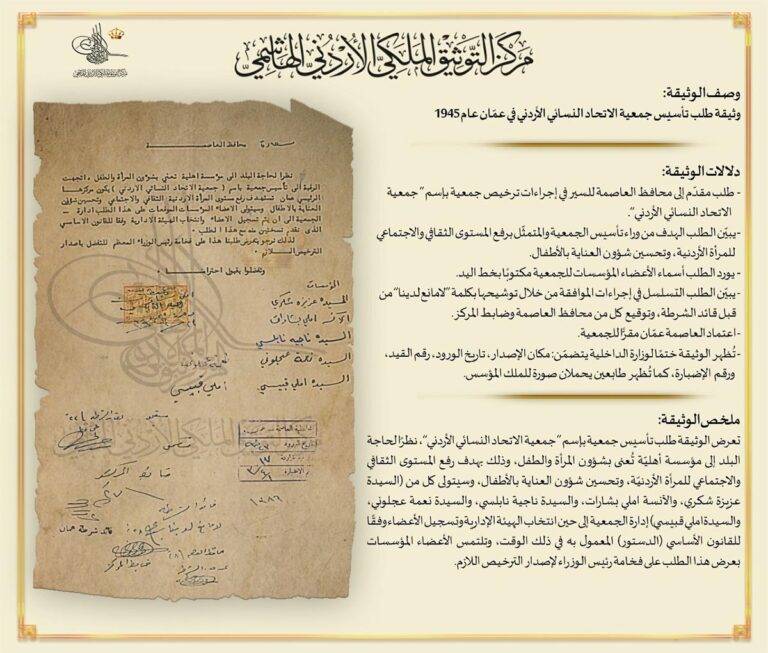 مركز التوثيق الملكي الأردني الهاشمي
وصف الوثيقة:
وثيقة طلب تأسيس جمعية الاتحاد النسائي الأردني في عمّان عام 1945
دلالات الوثيقة:
- طلب مقدّم إلى محافظ العاصمة للسير في إجراءات ترخيص جمعية بإسم "جمعية
الاتحاد النسائي الأردني".
- يبيّن الطلب الهدف من وراء تأسيس الجمعية والمتمثّل برفع المستوى الثقافي والاجتماعي
للمرأة الأردنية، وتحسين شؤون العناية بالأطفال.
- يورد الطلب أسماء الأعضاء المؤسسات للجمعية مكتوبًا بخط اليد.
- يبيّن الطلب التسلسل في إجراءات الموافقة من خلال توشيحها بكلمة "لامانع لدينا" من
قبل قائد الشرطة، وتوقيع كل من محافظ العاصمة وضابط المركز.
- اعتماد العاصمة عمّان مقرًّا للجمعية.
- تُظهر الوثيقة ختمًا لوزارة الداخلية يتضمّن: مكان الإصدار، تاريخ الورود، رقم القيد،
ورقم الإضبارة، كما تُظهر طابعين يحملان صورة للملك المؤسس.
ملخص الوثيقة:
تعرض الوثيقة طلب تأسيس جمعية بإسم "جمعية الاتحاد النسائي الأردني"، نظرًا لحاجة
البلد إلى مؤسسة أهليّة تُعنى بشؤون المرأة والطفل، وذلك بهدف رفع المستوى الثقافي
والاجتماعي للمرأة الأردنيّة، وتحسين شؤون العناية بالأطفال، وسيتولى كل من (السيدة
عزيزة شكري، والآنسة املي بشارات، والسيدة ناجية نابلسي، والسيدة نعمة عجلوني،
والسيدة املي قبيسي) إدارة الجمعية إلى حين انتخاب الهيئة الإدارية وتسجيل الأعضاء وفقًا
للقانون الأساسي (الدستور) المعمول به في ذلك الوقت، وتلتمس الأعضاء المؤسسات
بعرض هذا الطلب على فخامة رئيس الوزراء لإصدار الترخيص اللازم.
محافظ العاصمة
نظرا لحاجة البلد الى مؤسسة اهلية تعنى بشؤون المرأة والطفل ، اتجهت
الرغبة الى تأسيس جمعية باسم ( جمعية الاتحاد النسائي الاردني ) يكون مركزها
الرئيسي عمان تستهدف رفع مستوى المرأة الاردنية الثقافي والاجتماعي وتحسين شؤون
العناية بالاطفال وسيتولى الاعضاء المؤسسات الموقعات على هذا الطلب ادارة
الجمعية الى ان يتم تسجيل الاعضاء وانتخاب الهيئة الادارية وفقا للقانون الاساسي
الذي نقدم نسختين منه مع هذا الطلب .
لذلك نرجو بعرض طلبنا هذا على فخامة رئيس الوزراء المعظم للتفضل باصدار
الترخيص اللازم .
وتفضلوا بقبول احترامنا ،
المؤسسات
السيده عزيزه شكري
الآنسه املي بشارات
السيده ناجيه نابلسي
السيده نعمة عجلوني
السيده املي قبيسي
املي قبيسي
قائد شرطة عمان
ضابط المركز